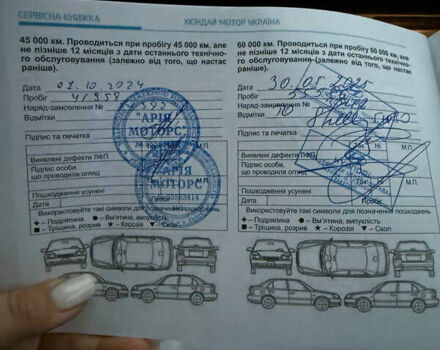 СЕРВІСНА КНИЖКА
ХЮНДАЙ МОТОР УКРАЇНА
45 000 км. Проводиться при пробігу 45 000 км, але
не пізніше 12 місяців з дати останнього технічно-
го обслуговування (залежно від того, що настає
раніше).
Дата 01.10.2024
Пробіг
Наряд-замовлення №
Відмітки
Підпис та печатка
"АРІЯ
МОТОРС"
М.П.
Виявлені дефекти ЛФП
Підпис особи,
що проводила огляд
"АРІЯ
МОТОРС"
Пошкодження усунені
Дата
Використовуйте такі символи для позначення пошкоджень
◆ – Подряпина ● – Вм'ятина, випуклість
■ – Тріщина, розрив ★ – Корозія ▼ – Скол
60 000 км. Проводиться при пробігу 60 000 км, але
не пізніше 12 місяців з дати останнього технічно-
го обслуговування (залежно від того, що настає
раніше).
Дата 30.05.2025
Пробіг
Наряд-замовлення №
Відмітки
Підпис та печатка
Ні
М.П.
Виявлені дефекти ЛФП
Підпис особи,
що проводила огляд
М.П.
Пошкодження усунені
Дата
Пробіг
Використовуйте такі символи для позначення пошкоджень
◆ – Подряпина ● – Вм'ятина, випуклість
■ – Тріщина, розрив ★ – Корозія ▼ – Скол